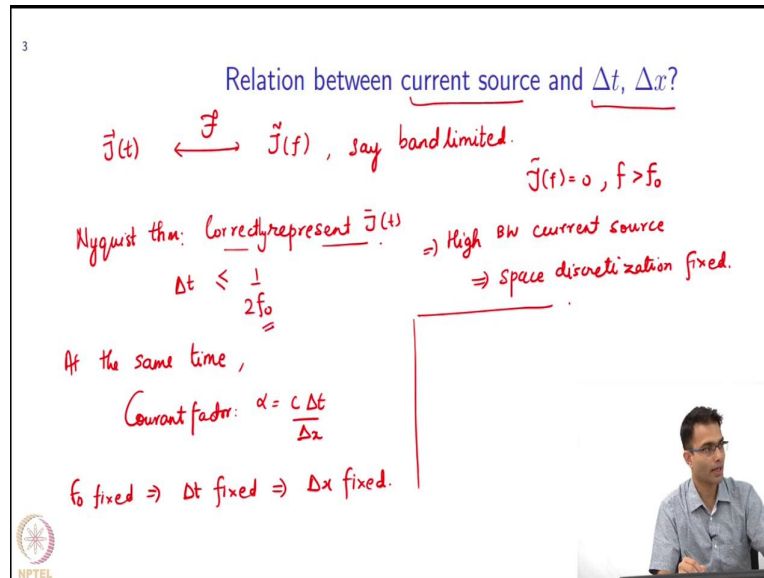 3
Relation between current source and Δt, Δx?
J⃗(t) ⟷ J̃(f), say bandlimited.
ℱ
J̃(f)=0, f>f₀
Nyquist thm: Correctly represent J̄(t)
Δt ≤ 1/2f₀
⇒ High BW current source
⇒ space discretization fixed.
At the same time,
Courant factor: α = cΔt/Δx
f₀ fixed ⇒ Δt fixed ⇒ Δx fixed.
NPTEL